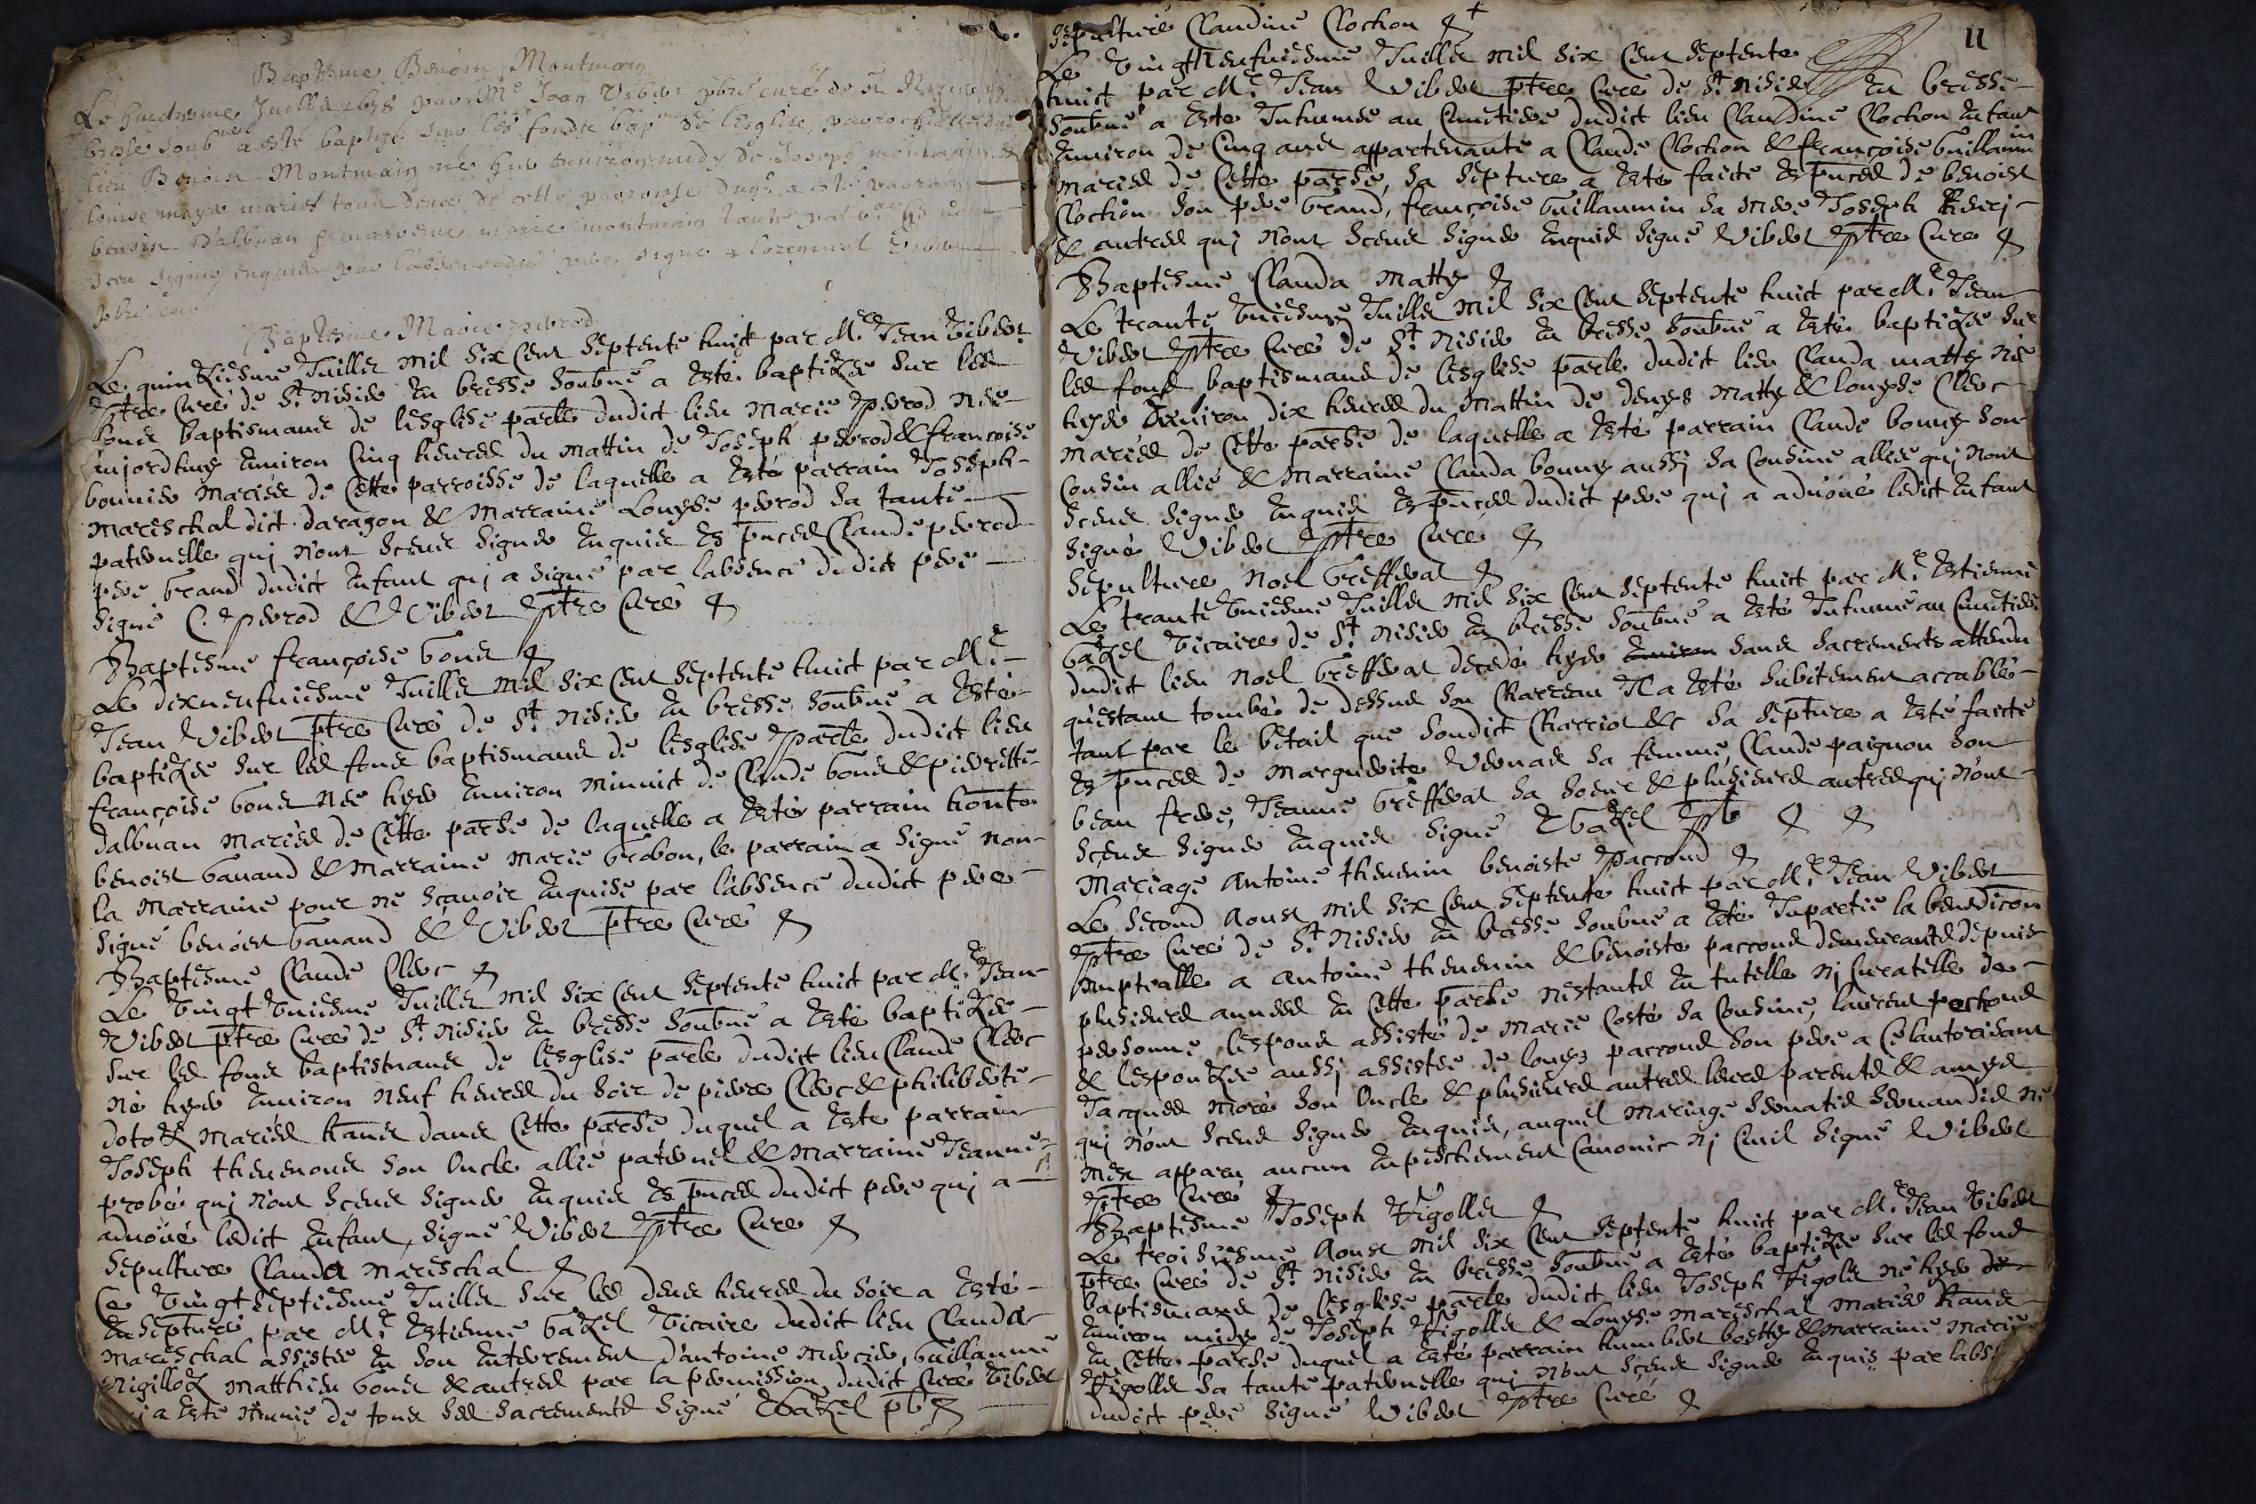 Baptesme Benoin Montmain
Le huictiesme Juillet 1678 par Me Jean Vibert pbre curé de St
bresse soubné a esté baptizé sur les fonds bap de lesglise parrochialle du
lieu Benoin Montmain né hier environ midy de Joseph montmain &
louise mariés tous deux de cette parroisse
benoin Dalbuan & marraine marie montmain tante
sceu signer enquis par labsence du pere signé a loriginal Vibert
pbre curé
Baptesme Marie perrod
Le quinziesme Juillet mil six cent septente huict par Mre Jean Vibert
ptre Curé de St Nisier en bresse soubné a esté baptizée sur les
fons baptismaus de lesglise parle dudict lieu Marie perrod née
aujordhuy environ Cinq heures du mattin de Joseph perrod & francoise
bonnier Mariés de Cette parroisse de laquelle a esté parrain Joseph
Mareschal dict daragon & Marraine Louyse perrod sa tante
paternelle qui nont sceus signer enquis es pnces Claude perrod
pere Grand dudict enfant qui a signé par labsence dudict pere
signé C. perrod & Vibert ptre Curé
Baptesme françoise Gons
Le dixneufuiesme Juillet mil six Cent septente huict par Mre
Jean Vibert ptre Curé de St Nisier en bresse soubné a esté
baptizée sur les fons baptismaus de lesglise parle dudict lieu
françoise Gons née hyer environ Minuict de Claude Gons & pierrette
dalbuan Mariés de Cette parse de laquelle a esté parrain honte
benoist Gauand & Marraine Marie Grobon, le parrain a signé non
la Marraine pour ne scauoir enquise par labsence dudict pere
signé benoist Gauand & Vibert ptre Curé
Baptesme Claude Clerc
Le Vingt Vniesme Juillet mil six Cent septente huict par Mre Jean
Vibert ptre Curé de St Nisier en bresse soubné a esté baptizé
sur les fons baptismaus de lesglise parle dudict lieu Claude Clerc
né hyer environ neuf heures du soir de pierre Clerc & philiberte
dotoz Mariés hans dans Cette parse duquel a esté parrain
Joseph theuenons son Oncle allié paternel & Marraine Jeanne
probé qui nont sceus signer enquis es pnces dudict pere qui a
aduoué ledict enfant, signé Vibert ptre Curé
Sepulture Clauda Mareschal
Ce Vingtseptiesme Juillet sur les deux heures du soir a esté
ensepturé par Mre Estienne Gazel Vicaire dudict lieu Clauda
Mareschal assistée en son enterrement dantoine Mercier, Guillaume
Nigilloz Matthieu Gons & autres par la permission dudict Curé Vibert
a esté Munie de tous ses sacrements signé EGazel pb
11
Sepulture Claudine Clochon
Le Vingtneufuiesme Juillet mil six Cent septente
huict par Mre Jean Vibert ptre Curé de St Nisier en bresse
soubné a este Inhumée au Cimetiere dudict lieu Claudine Clochon enfant
environ de Cinq ans appartenante a Claude Clochon & françoise Guillaumin
mariés de Cette parse, sa septure a esté faicte es pnces de benoist
Clochon son pere Grand, françoise Guillaumin sa Mere Joseph
& autres qui nont sceus signer enquis signé Vibert ptre Curé
Baptesme Clauda Matty
Le trante Vniesme Juillet mil six Cent septente huict par Mre Jean
Vibert ptre Curé de St Nisier en bresse soubné a esté baptizée sur
les fons baptismaus de lesglise parle dudict lieu Clauda matty née
hyer environ dix heures du Mattin de denys Matty & louyse Clerc
mariés de Cette parse de laquelle a esté parrain Claude bonny son
Cousin allié & Marraine Clauda bonny aussj sa Cousine alliée qui nont
sceus signer enquis es pnces dudict pere qui a aduoué ledict enfant
signé Vibert ptre Curé
Sepulture Noel Greffetat
Le trante Vniesme Juillet mil six Cent septente huict par Mre Estienne
Gazel Vicaire de St Nisier en bresse soubné a esté Inhumé au Cimetiere
dudict lieu Noel Greffetat decedé hyer environ sans sacrements attendu
questant tombé de dessus son Charreau Il a esté subitement accablé
tant par le betail que sondict Charriot &c sa septure a esté faicte
es pnces de Marguerite Vernas sa femme, Claude paignon son
beau frere, Jeanne Greffetat sa soeur & plusieurs autres qui nont
sceus signer enquis signé EGazel pb
Mariage Antoine theuenin benoiste parrond
Le second Aoust mil six Cent septente huict par Mre Jean Vibert
ptre Curé de St Nisier en bresse soubné a esté Inpartie la benediction
nuptialle a Antoine theuenin & benoiste parrond demeurants depuis
plusieurs annees en Cette parse nestants en tutelle nj Curatelle de
personne, lespoux assisté de Marie Costé sa Cousine, laurent pochond
& lespouzée aussj assistée de louys parrond son pere a Ce lautorisant
Jacques Moré son Oncle & plusieurs autres leurs parents & amys
qui nont sceus signer enquis, auquel Mariage seruatis seruandis ne
mest apparu aucun enpeschement Canonic nj Ciuil signé Vibert
ptre Curé
Baptesme Joseph Vigollet
Le troisiesme Aoust mil six Cent septente huict par Mre Jean Vibert
ptre Curé de St Nisier en bresse soubné a esté baptizée sur les fons
baptismaus de lesglise parle dudict lieu Joseph Vigollet né hyer de
environ midy de Joseph Vigollet & Louyse Mareschal Mariés hans
en Cette parse duquel a esté parrain humbert boetty & Marraine Marie
Vigollet sa tante paternelle qui nont sceus signer enquis par labs
dudict pere signé Vibert ptre Curé